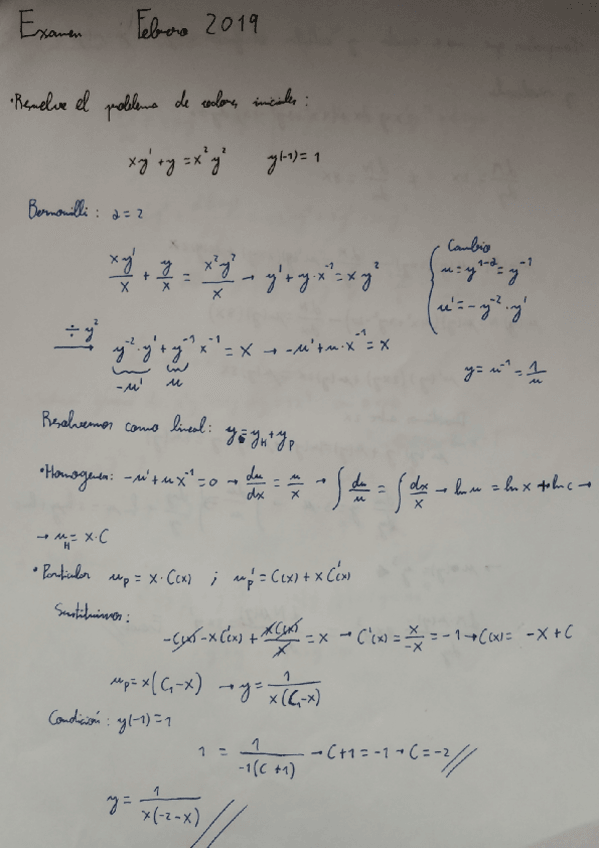 Examen Febrero 2019
• Resuelve el problema de valores iniciales:
xy' + y = x²y² y(-1) = 1
Bernouilli: α = 2
xy'/x + y/x = x²y²/x → y' + y·x⁻¹ = xy²
Cambio
u = y^(1-α) = y⁻¹
u' = -y⁻²·y'
÷y² → y⁻²·y' + y⁻¹x⁻¹ = x → -u' + u·x⁻¹ = x
-u' u
y = u⁻¹ = 1/u
Resolvemos como lineal: y = y_H + y_P
• Homogenea: -u' + ux⁻¹ = 0 → du/dx = u/x → ∫ du/u = ∫ dx/x → ln u = ln x + ln c →
→ u_H = x·C
• Particular u_P = x·C(x) ; u_P' = C(x) + xC'(x)
Sustituimos:
-C(x) - xC'(x) + xC(x)/x = x → C'(x) = x/-x = -1 → C(x) = -x + C
u_P = x(C₁-x) → y = 1/x(C₁-x)
Condición: y(-1) = 1
1 = 1/-1(C+1) → C+1 = -1 → C = -2 //
y = 1/x(-2-x) //